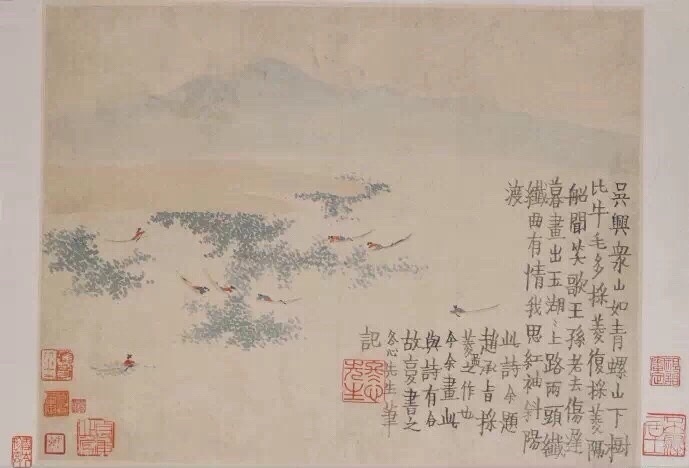 吳興衆山如青螺山下樹
比牛毛多採菱復採菱隔
船聞笑歌王孫老去傷遲
暮畫出玉湖〻上路兩頭纖
纖曲有情我思紅袖斜陽
渡
此詩余題
趙承旨採
菱圖之作也
今余畫此
與詩有合
故更書之
冬心先生筆
記
冬心先生